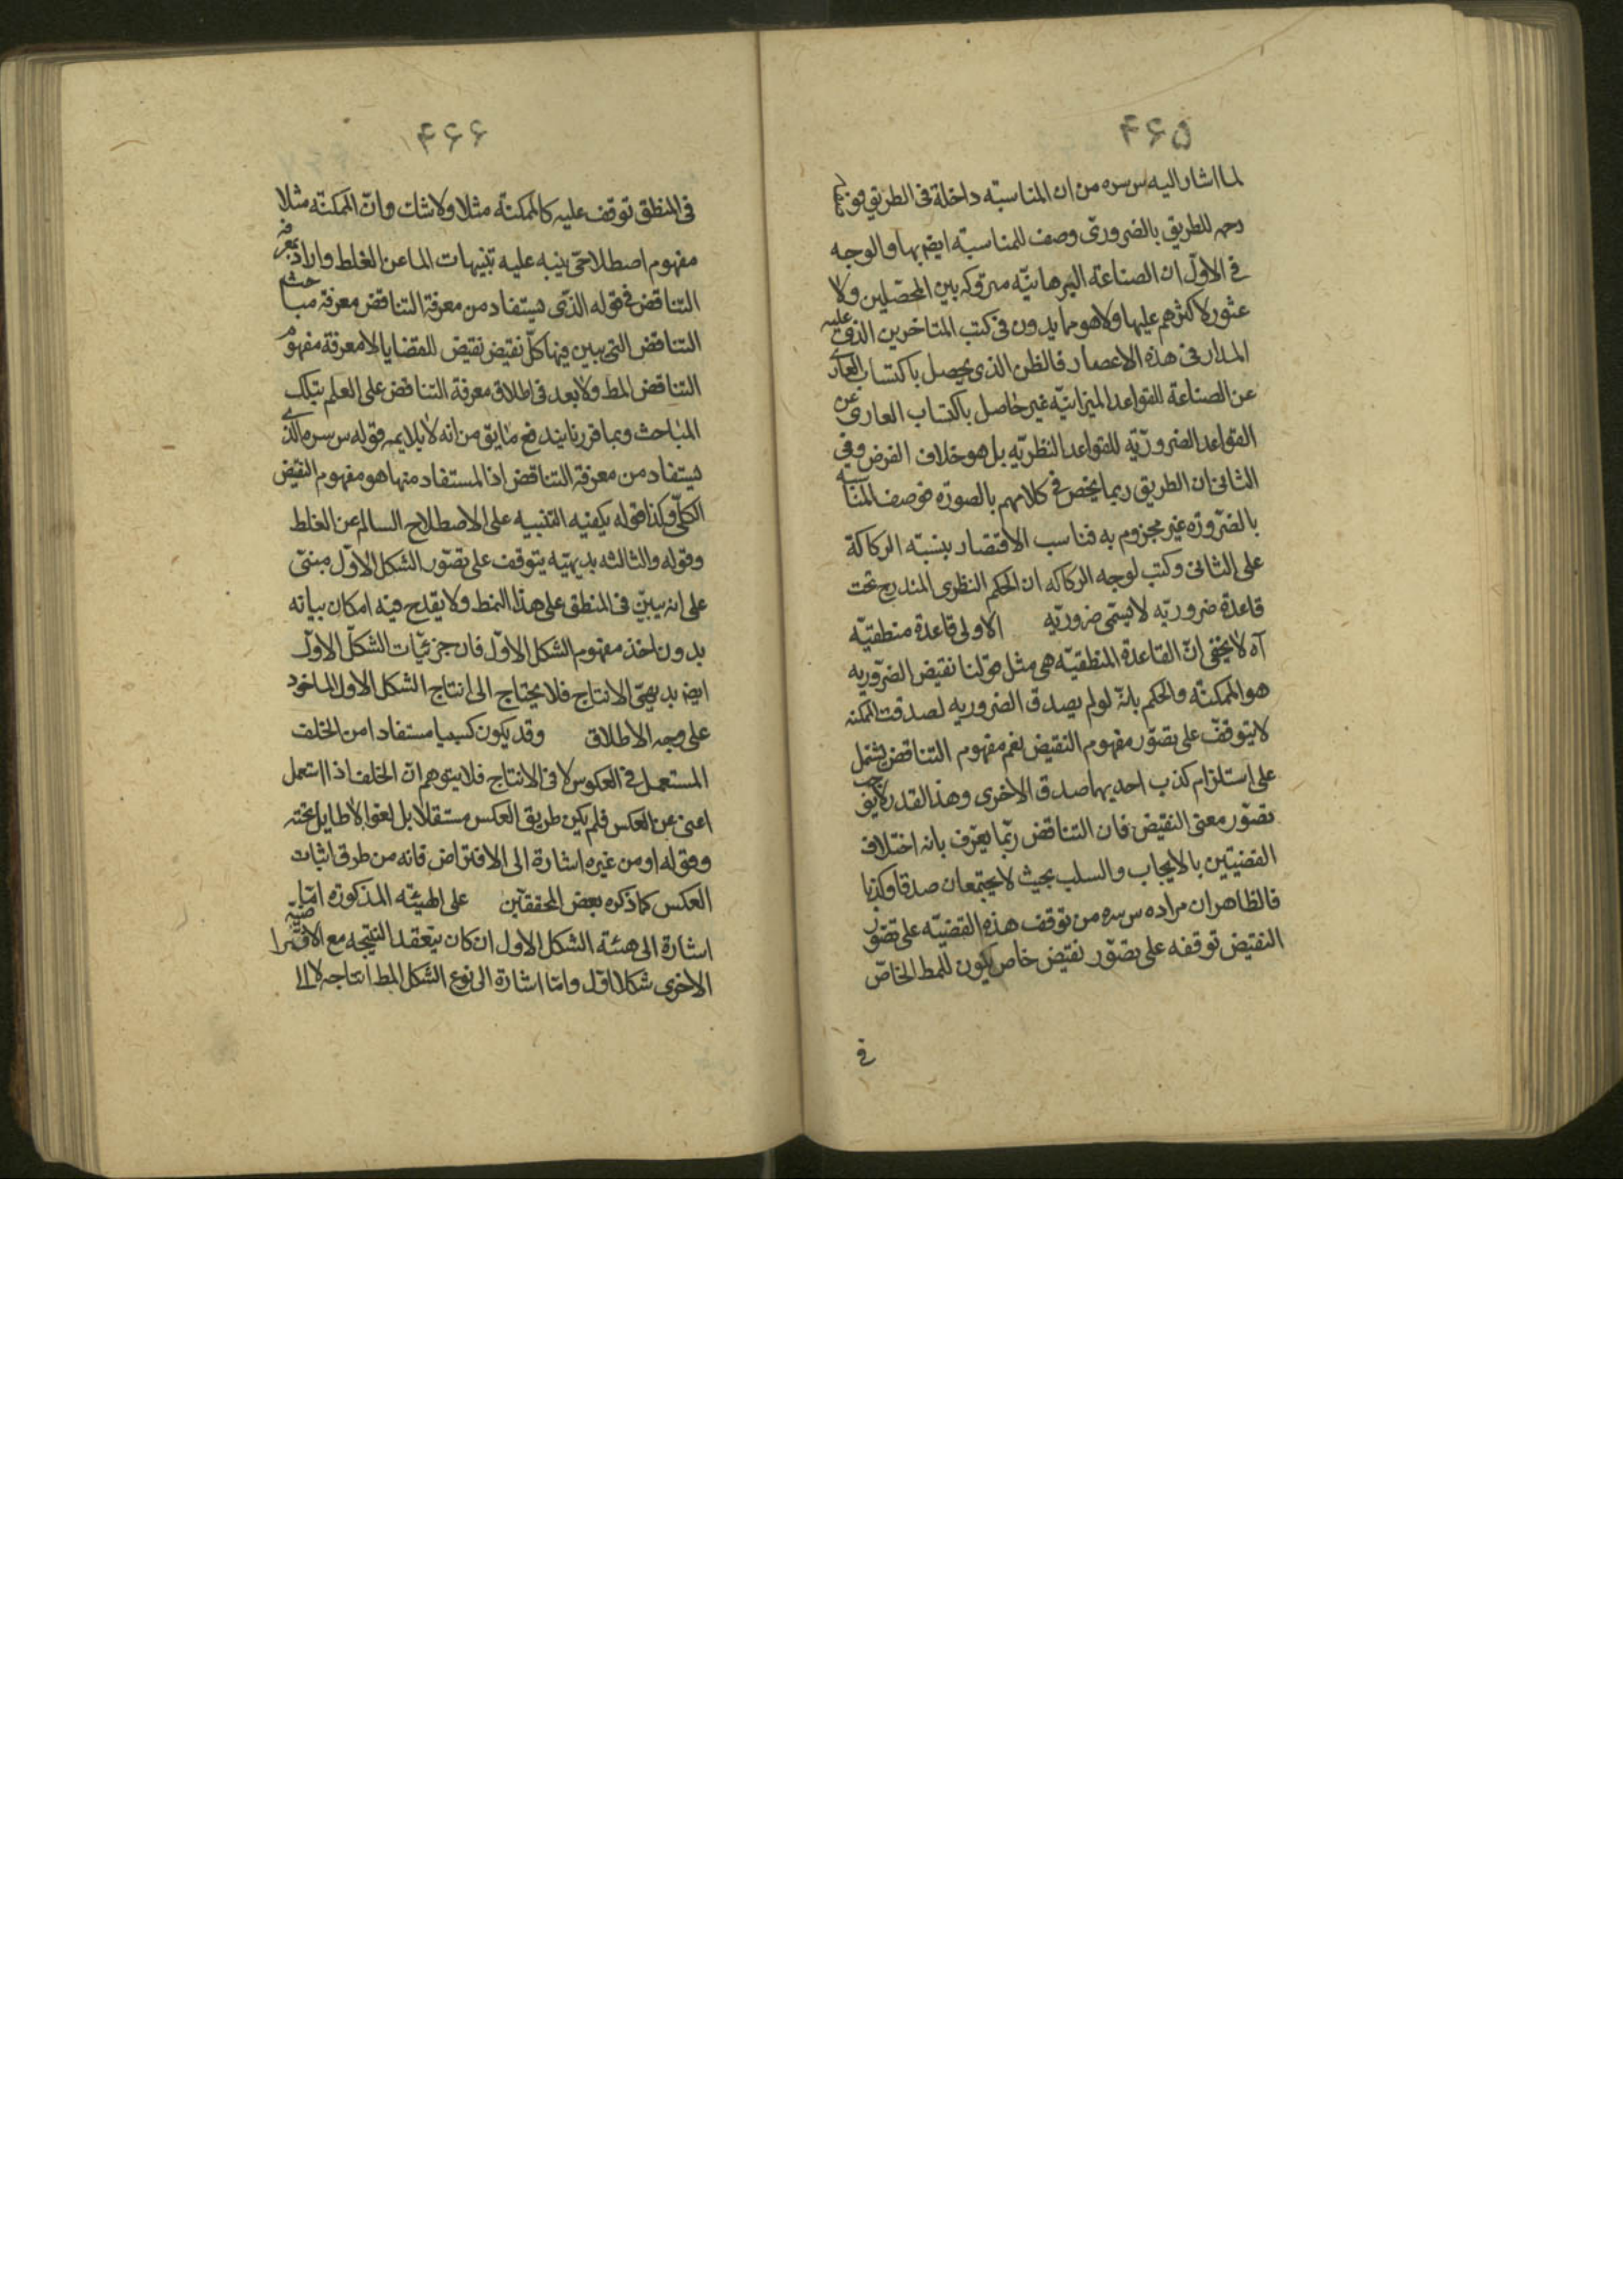 ۴۶۵
لما اشار اليه س سره من ان المناسبته داخلة فى الطريق
للطريق بالضرورى وصف للمناسبته ايضر بها والوجه
فى الاول ان الصناعة البرهانيّه متروكه بين المحصّلين ولا
عثور لاكثرهم عليها ولا هو مما يدون فى كتب المتاخرين الذى عليه
المدار فى هذه الاعصار فالظن الذى يحصل باكتساب العار
عن الصناعة للقواعد الميزانيّه غير حاصل باكتساب العارى عن
القواعد الضروريّه للقواعد النظريّه بل هو خلاف الفرض وفى
الثانى ان الطريق ربما يخص فى كلامهم بالصورة فوصف المناسبه
بالضرورة غير مجزوم به فناسب الاقتصار بنسبته الركاكة
على الثانى وكتب لوجه الركاكه ان الحكم النظرى المندرج تحت
قاعدة ضروريه لا يسمى ضروريّه الاولى قاعدة منطقيّه
آه لا يخفى انّ القاعدة المنطقيّه هى مثل قولنا نقيض الضروريه
هو الممكنة والحكم بانه لو لم يصدق الضروريه لصدقت الممكنه
لا يتوقف على تصوّر مفهوم النقيض نعم مفهوم التناقض يشتمل
على استلزام كذب احديهما صدق الاخرى وهذا القدر لا
تصوّر معنى النقيض فان التناقض ربّما يعرّف بانه اختلاف
القضيتين بالايجاب والسلب بحيث لا يجتمعان صدقا وكذبا
فالظاهر ان مراده س سره من توقف هذه القضيّه على تصور
النقيض توقفه على تصوّر نقيض خاص يكون للمط الخاصّ
فى
۴۶۶
فى المنطق توقف عليه كالممكنة مثلا ولا شك وانّ الممكنة مثلا
مفهوم اصطلاحى ينبه عليه تنبيهات الما عن الغلط واراد بمعرفه
التناقض فى قوله الذى يستفاد من معرفة التناقض معرفة مباحث
التناقض التى يبين فيها كلّ نقيض نقيض للقضايا لا معرفة مفهوم
التناقض المط ولا بعد فى اطلاق معرفة التناقض على العلم بتلك
المباحث وبما قررنا يندفع ما يق من انه لا يلايمه قوله س سره الذى
يستفاد من معرفة التناقض اذا المستفاد منها هو مفهوم النقيض
الكلّى وكذا قوله يكفيه التنبيه على الاصطلاح السالم عن الغلط
وقوله والثالثه بديهيّه يتوقف على تصوّر الشكل الاوّل مبنى
على انه يبيّن فى المنطق على هذا النمط ولا يقدح فيه امكان بيانه
بدون اخذ مفهوم الشكل الاوّل فان جزئيّات الشكل الاوّل
ايضر بديهىّ الانتاج فلا يحتاج الى انتاج الشكل الاول الماخوذ
على وجه الاطلاق وقد يكون كسبيا مستفادا من الخلف
المستعمل فى العكوس لا فى الانتاج فلا يتوهم ان الخلف اذا استعمل
اغنى عن العكس فلم يكن طريق العكس مستقلا بل لغوا لا طايل تحته
وقوله او من غيره اشارة الى الافتراض فانه من طرق اثبات
العكس كما ذكره بعض المحققين على الهيئه المذكورة امّا
اشارة الى هيئة الشكل الاول ان كان ينعقد النتيجه مع
الاخرى شكلا اول وامّا اشارة الى نوع الشكل المط انتاجه